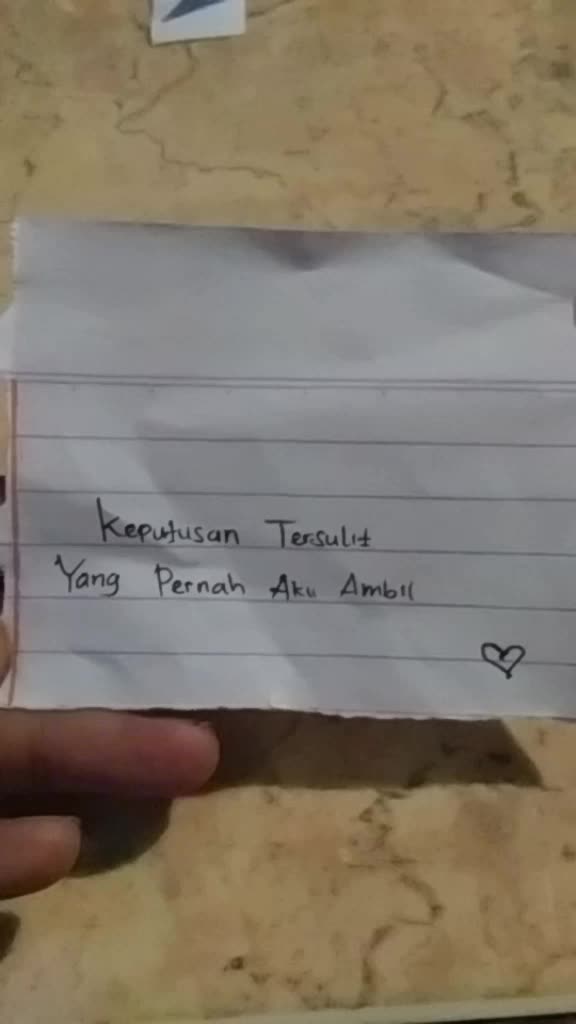 Keputusan Tersulit
Yang Pernah Aku Ambil